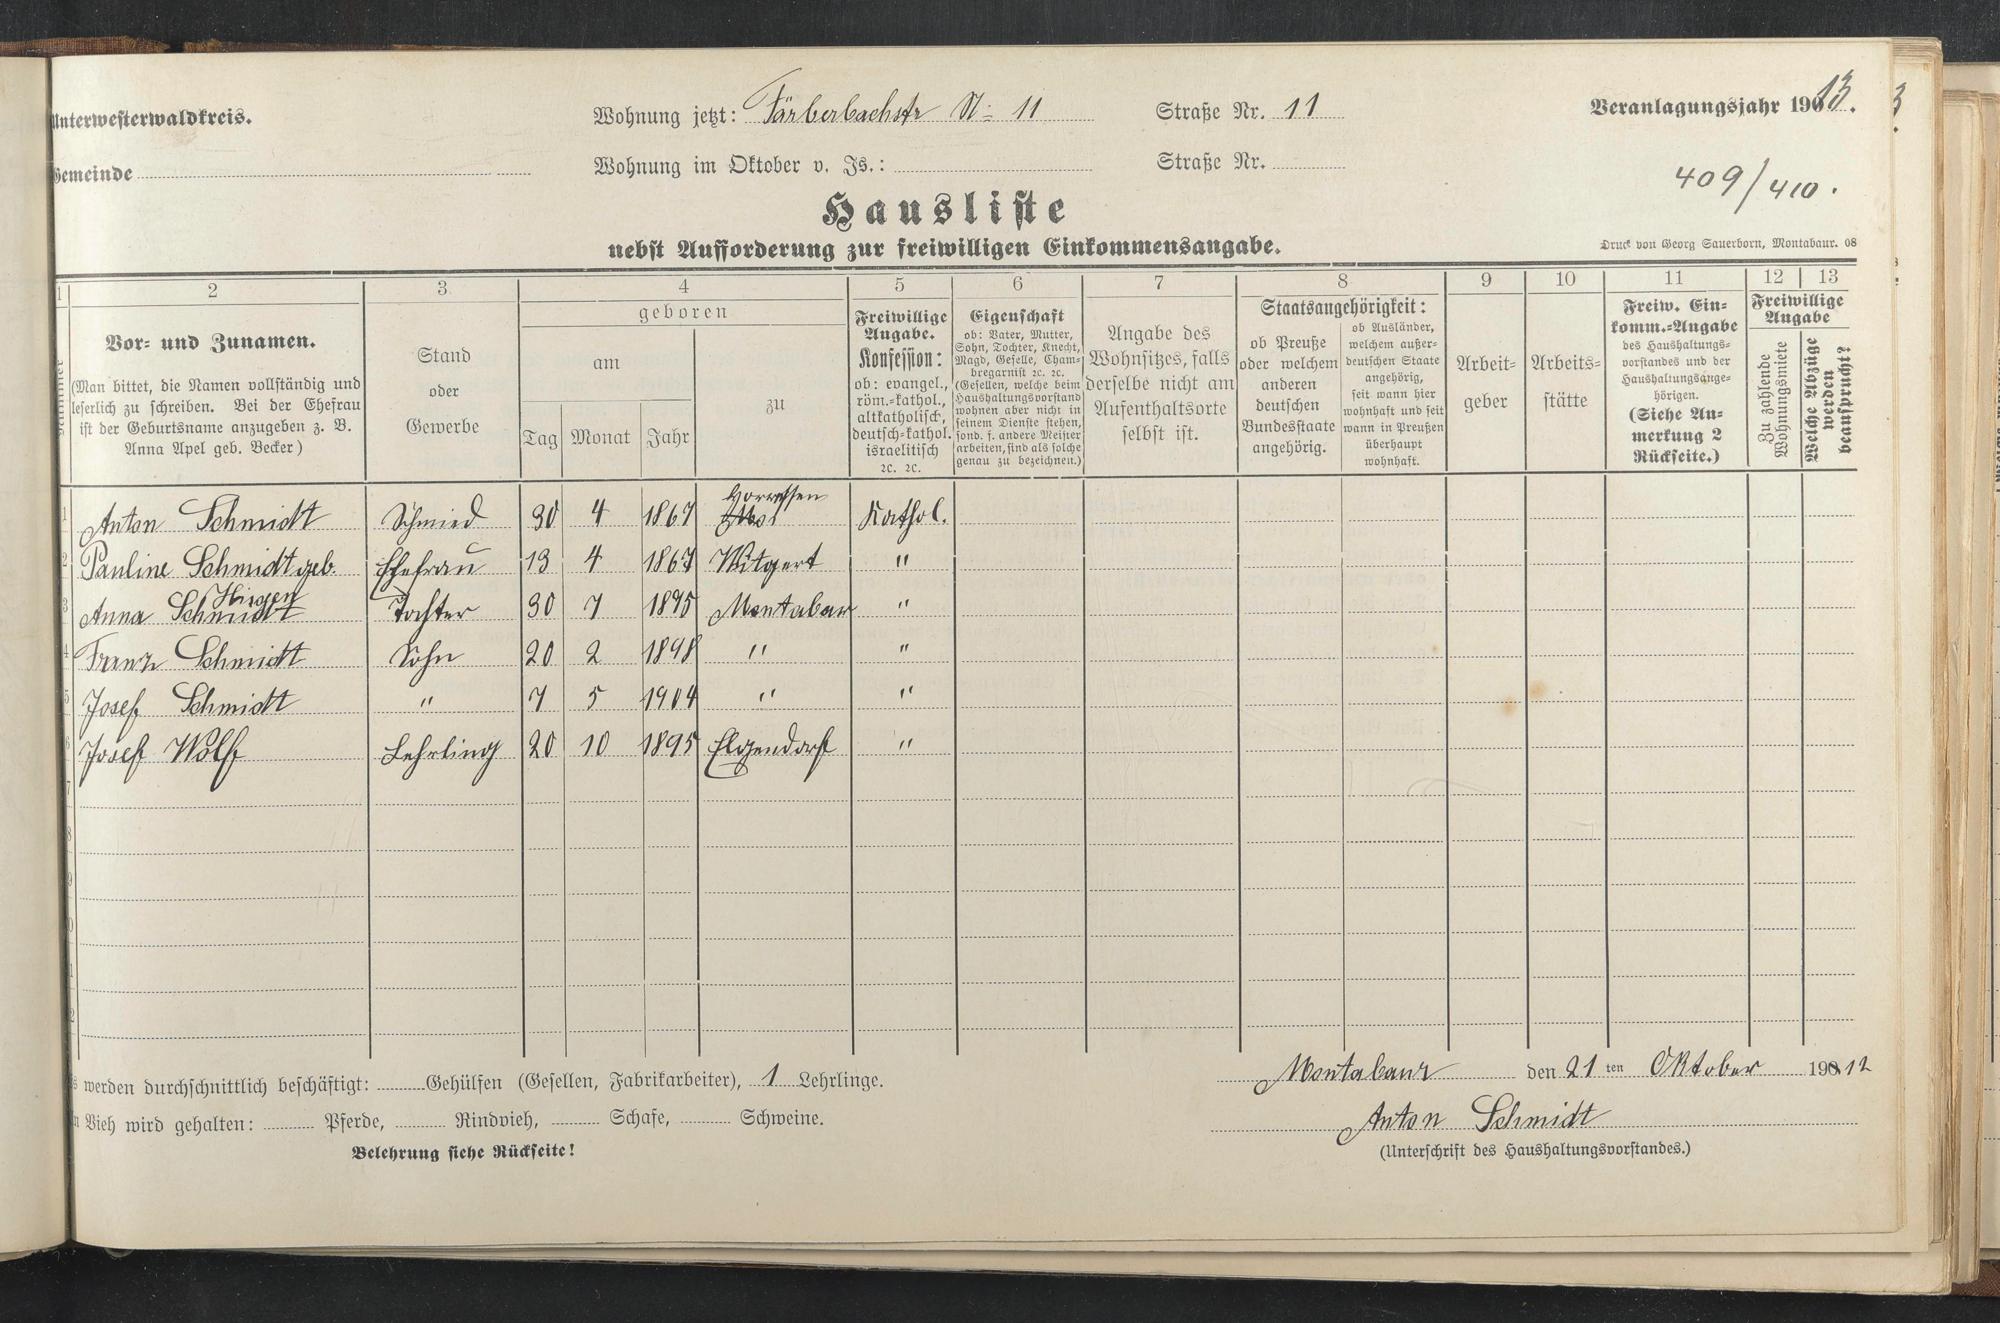 Unterwesterwaldkreis.
Wohnung jetzt: Färberbachstr N= 11 Straße Nr. 11
Veranlagungsjahr 1913.
Gemeinde
Wohnung im Oktober v. Js.: Straße Nr.
409/410.
Hausliste
nebst Aufforderung zur freiwilligen Einkommensangabe.
Druck von Georg Sauerborn, Montabaur. 08
1 2 3 4 5 6 7 8 9 10 11 12 13
Nummer
Vor- und Zunamen.
(Man bittet, die Namen vollständig und
leserlich zu schreiben. Bei der Ehefrau
ist der Geburtsname anzugeben z. B.
Anna Apel geb. Becker)
Stand
oder
Gewerbe
geboren
am
Tag Monat Jahr
zu
Freiwillige
Angabe.
Konfession:
ob: evangel.,
röm.-kathol.,
altkatholisch,
deutsch-kathol.
israelitisch
ec. ec.
Eigenschaft
ob: Vater, Mutter,
Sohn, Tochter, Knecht,
Magd, Geselle, Cham-
bregarnist ec. ec.
(Gesellen, welche beim
Haushaltungsvorstand
wohnen aber nicht in
seinem Dienste stehen,
sond. f. andere Meister
arbeiten, sind als solche
genau zu bezeichnen.)
Angabe des
Wohnsitzes, falls
derselbe nicht am
Aufenthaltsorte
selbst ist.
Staatsangehörigkeit:
ob Preuße
oder welchem
anderen
deutschen
Bundesstaate
angehörig.
ob Ausländer,
welchem außer-
deutschen Staate
angehörig,
seit wann hier
wohnhaft und seit
wann in Preußen
überhaupt
wohnhaft.
Arbeit-
geber
Arbeits-
stätte
Freiw. Ein-
komm.-Angabe
des Haushaltungs-
vorstandes und der
Haushaltungsange-
hörigen.
(Siehe An-
merkung 2
Rückseite.)
Freiwillige
Angabe
Zu zahlende
Wohnungsmiete
Welche Abzüge
werden
beansprucht?
1 Anton Schmidt Schmied 30 4 1867 Horressen Kathol.
2 Pauline Schmidt geb. Ehefrau 13 4 1867 Witgert "
Hisgen
3 Anna Schmidt Tochter 30 7 1895 Montabaur "
4 Franz Schmidt Sohn 20 2 1898 " "
5 Josef Schmidt " 7 5 1904 " "
6 Josef Wolf Lehrling 20 10 1895 Elgendorf "
7
8
9
0
1
2
s werden durchschnittlich beschäftigt: Gehülfen (Gesellen, Fabrikarbeiter), 1 Lehrlinge.
n Vieh wird gehalten: Pferde, Rindvieh, Schafe, Schweine.
Belehrung siehe Rückseite!
Montabaur den 21 ten Oktober 1912
Anton Schmidt
(Unterschrift des Haushaltungsvorstandes.)